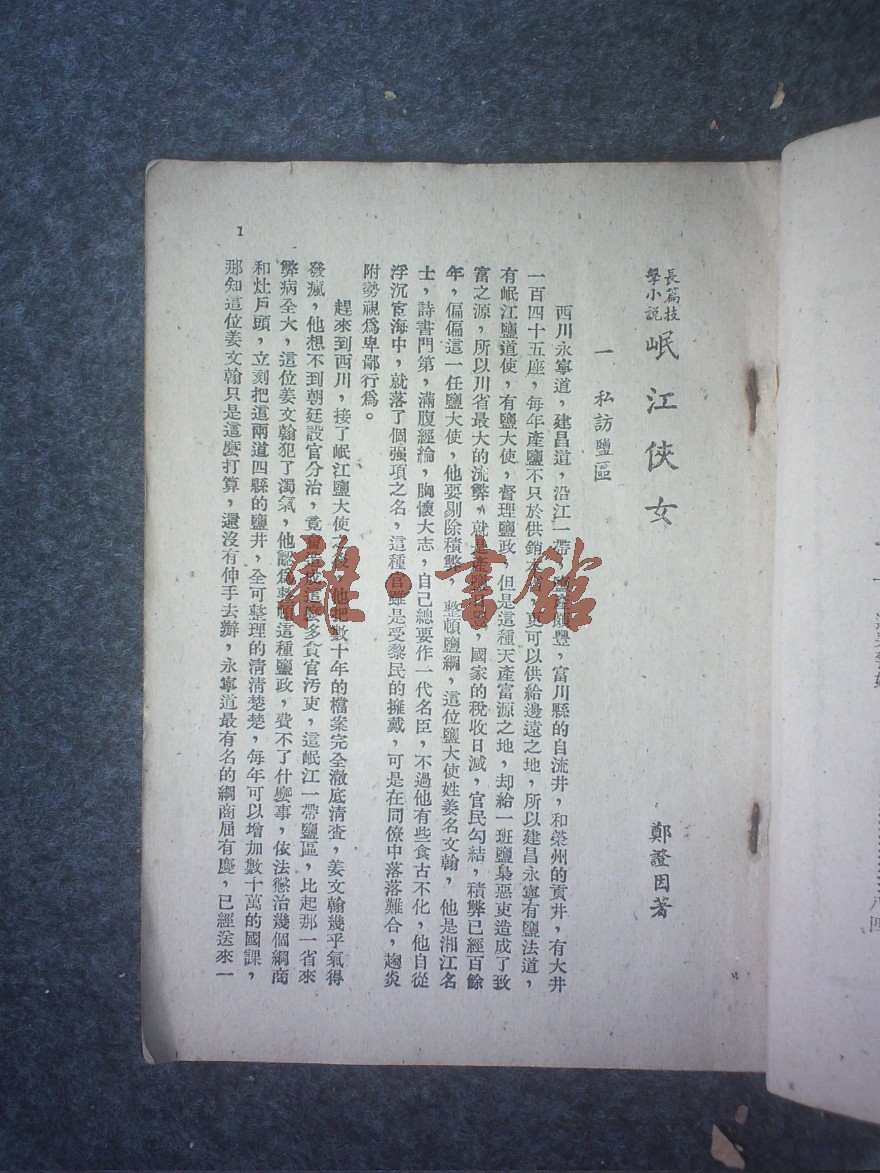 長篇技
擊小説
岷江俠女
鄭證因著
一 私訪鹽區
西川永寧道，建昌道，沿江一帶，鹽產頗豐，富川縣的自流井，和榮州的貢井，有大井
一百四十五座，每年產鹽不只於供銷本，更可以供給邊遠之地，所以建昌永寧有鹽法道，
有岷江鹽道使，有鹽大使，督理鹽政，但是這種天產富源之地，却給一班鹽梟惡吏造成了致
富之源，所以川省最大的流弊，就是產鹽，國家的稅收日減，官民勾結，積弊已經百餘
年，偏偏這一任鹽大使，他要剔除積弊，整頓鹽綱，這位鹽大使姓姜名文翰，他是湘江名
士，詩書門第，滿腹經綸，胸懷大志，自己總要作一代名臣，不過他有些食古不化，他自從
浮沉宦海中，就落了個强項之名，這種官雖是受黎民的擁戴，可是在同僚中落落難合，趨炎
附勢視爲卑鄙行爲。
趕來到西川，接了岷江鹽大使之後，他把數十年的檔案完全澈底清查，姜文翰幾乎氣得
發瘋，他想不到朝廷設官分治，竟會造成這麼多貪官汚吏，這岷江一帶鹽區，比起那一省來
弊病全大，這位姜文翰犯了濁氣，他認爲整頓這種鹽政，費不了什麼事，依法懲治幾個綱商
和灶戶頭，立刻把這兩道四縣的鹽井，全可整理的清清楚楚，每年可以增加數十萬的國課，
那知這位姜文翰只是這麼打算，還沒有伸手去辦，永寧道最有名的綱商屈有慶，已經送來一
1
雜·書館
八四